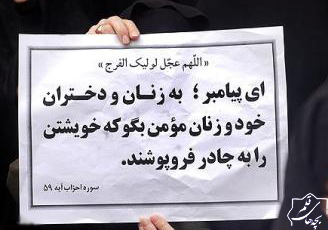 « اللّهم عجّل لولیک الفرج »
ای پیامبر ؛ به زنـان و دخـتـران
خود و زنان مؤمن بگو که خویشتن
را به چادر فروپوشند.
سوره احزاب آیه ۵۹